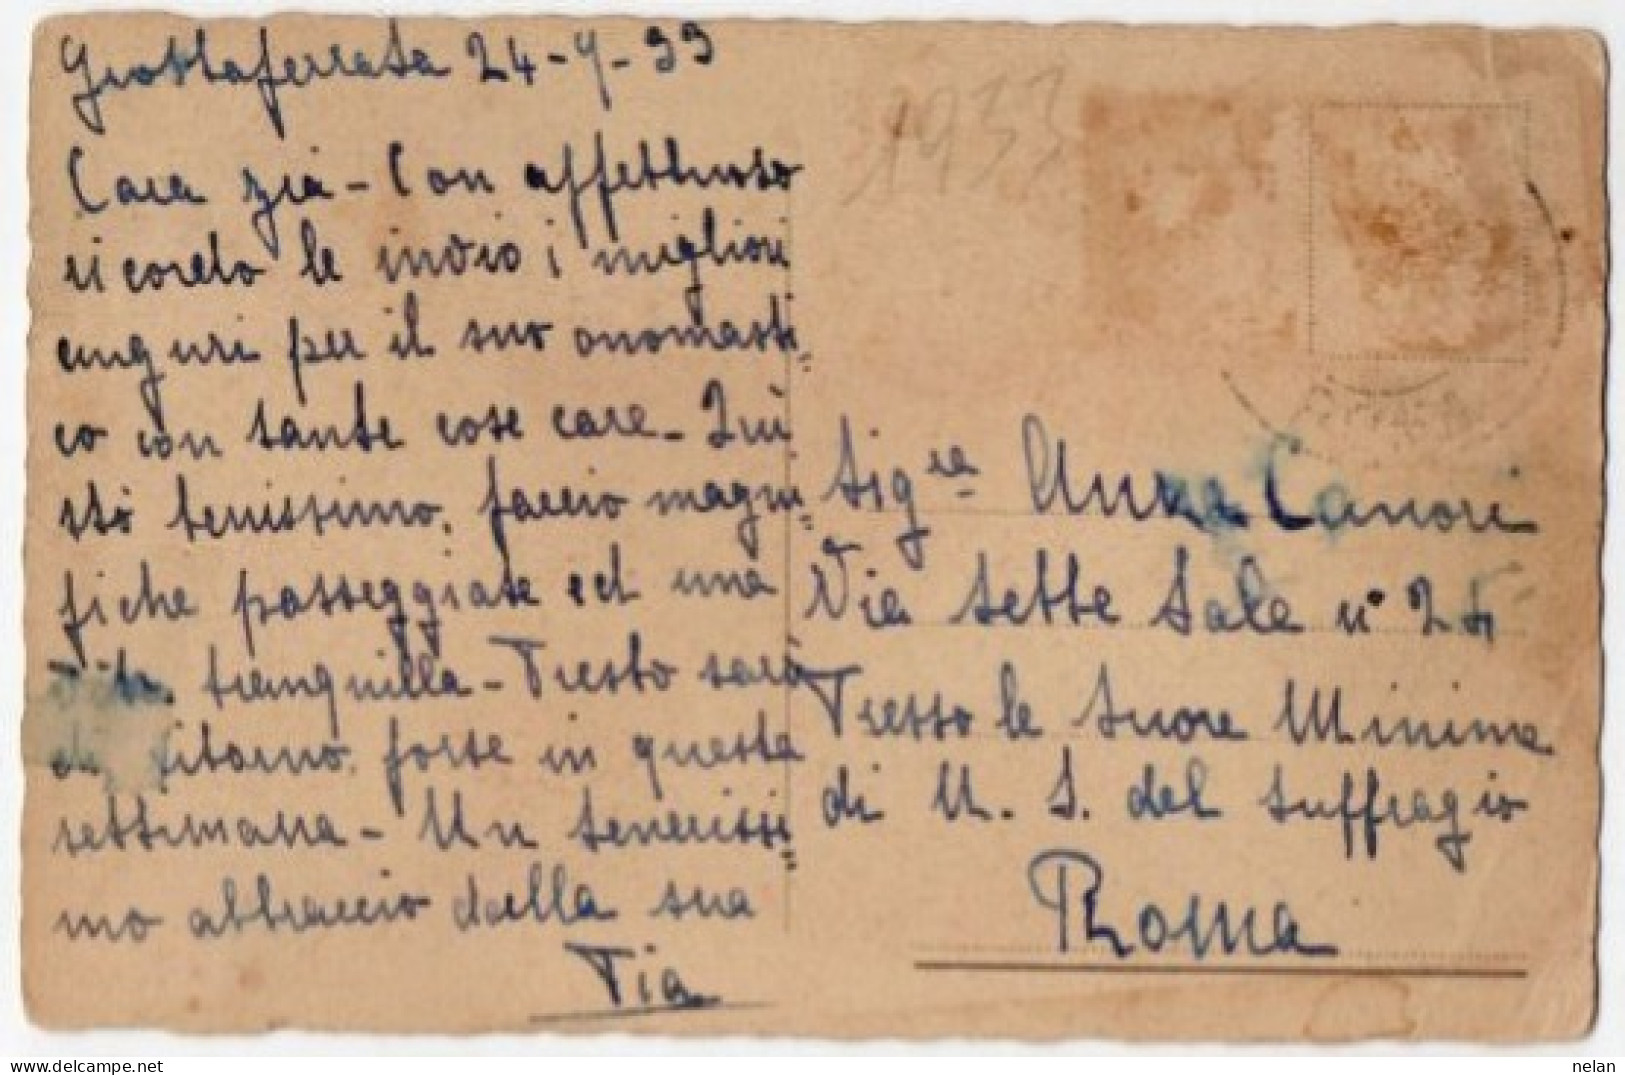 Grottaferrata 24-7-33
Cara zia - Con affettuoso
ricordo le invio i migliori
auguri per il suo onomasti=
co con tante cose care - Qui
sto benissimo, faccio magni=
fiche passeggiate ed una
vita tranquilla - Presto sarò
di ritorno, forse in questa
settimana - Un tenerissi=
mo abbraccio dalla sua
Pia
1933
Sig.ra Anna Canori
Via Sette Sale n° 24
Presso le Suore Minime
di N. S. del Suffragio
Roma
nelan